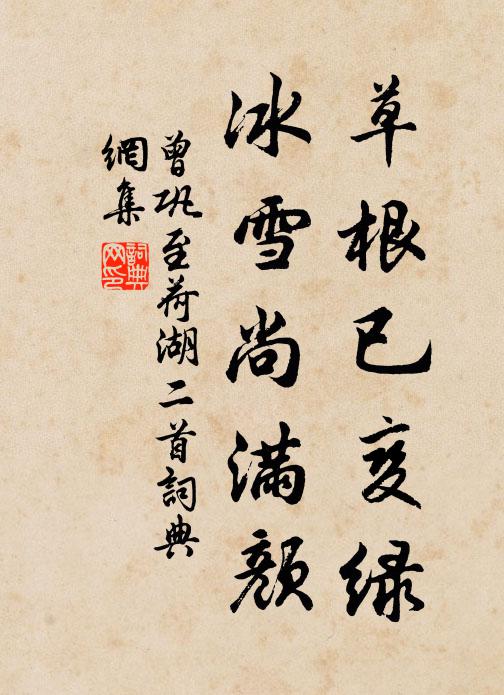 草根已变绿
冰雪尚满颜
曾巩至荷湖二首詞典
網集
詞典网印